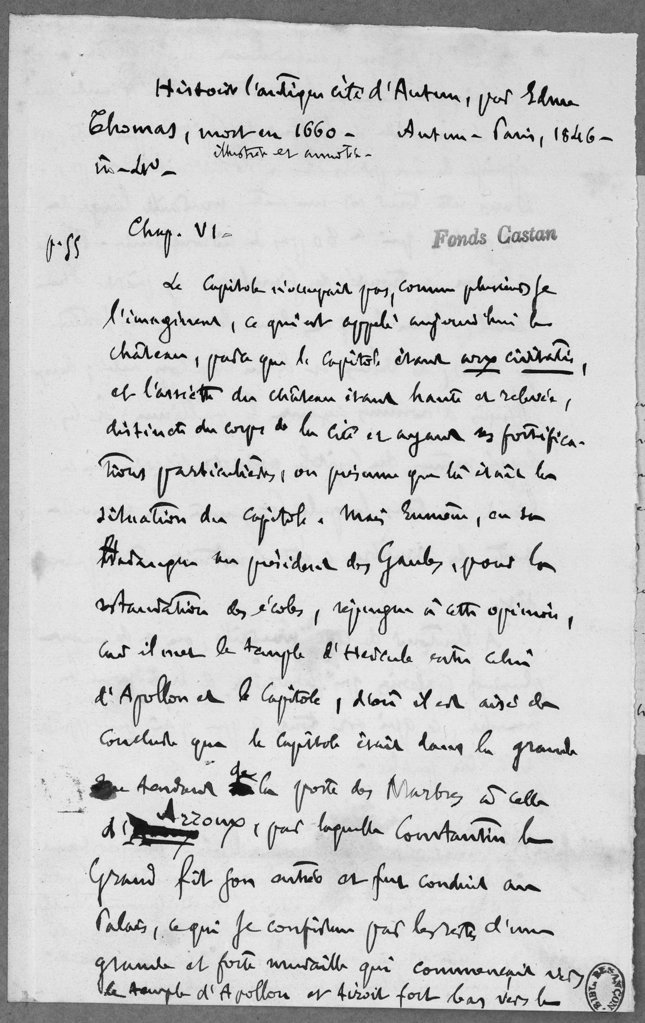 Histoire l'antique cité d'Autun, par Edme
Thomas, mort en 1660 – Autun – Paris, 1846 –
illustrée et annotée –
in-4º –
Chap. VI –
p. 55
Fonds Castan
Le Capitole n'occupait pas, comme plusieurs se
l'imaginent, ce qui est appelé aujourd'hui le
château, parce que le Capitole étant arx civitatis,
et l'assiette du château étant haute et relevée,
distincte du corps de la cité et ayant ses fortifica-
tions particulières, on présume que là était la
situation du Capitole. Mais Eumène, en sa
Harangue au président des Gaules, pour la
restauration des écoles, répugne à cette opinion,
car il met le temple d'Hercule entre celui
d'Apollon et le Capitole, d'où il est aisé de
conclure que le Capitole était dans la grande
rue tendant de la porte des Marbres à celle
d'Arroux, par laquelle Constantin le
Grand fit son entrée et fut conduit au
Palais, ce qui se confirme par les restes d'une
grande et forte muraille qui commençait vers
le temple d'Apollon et tiroit fort bas vers le
BIBL. BESANÇON